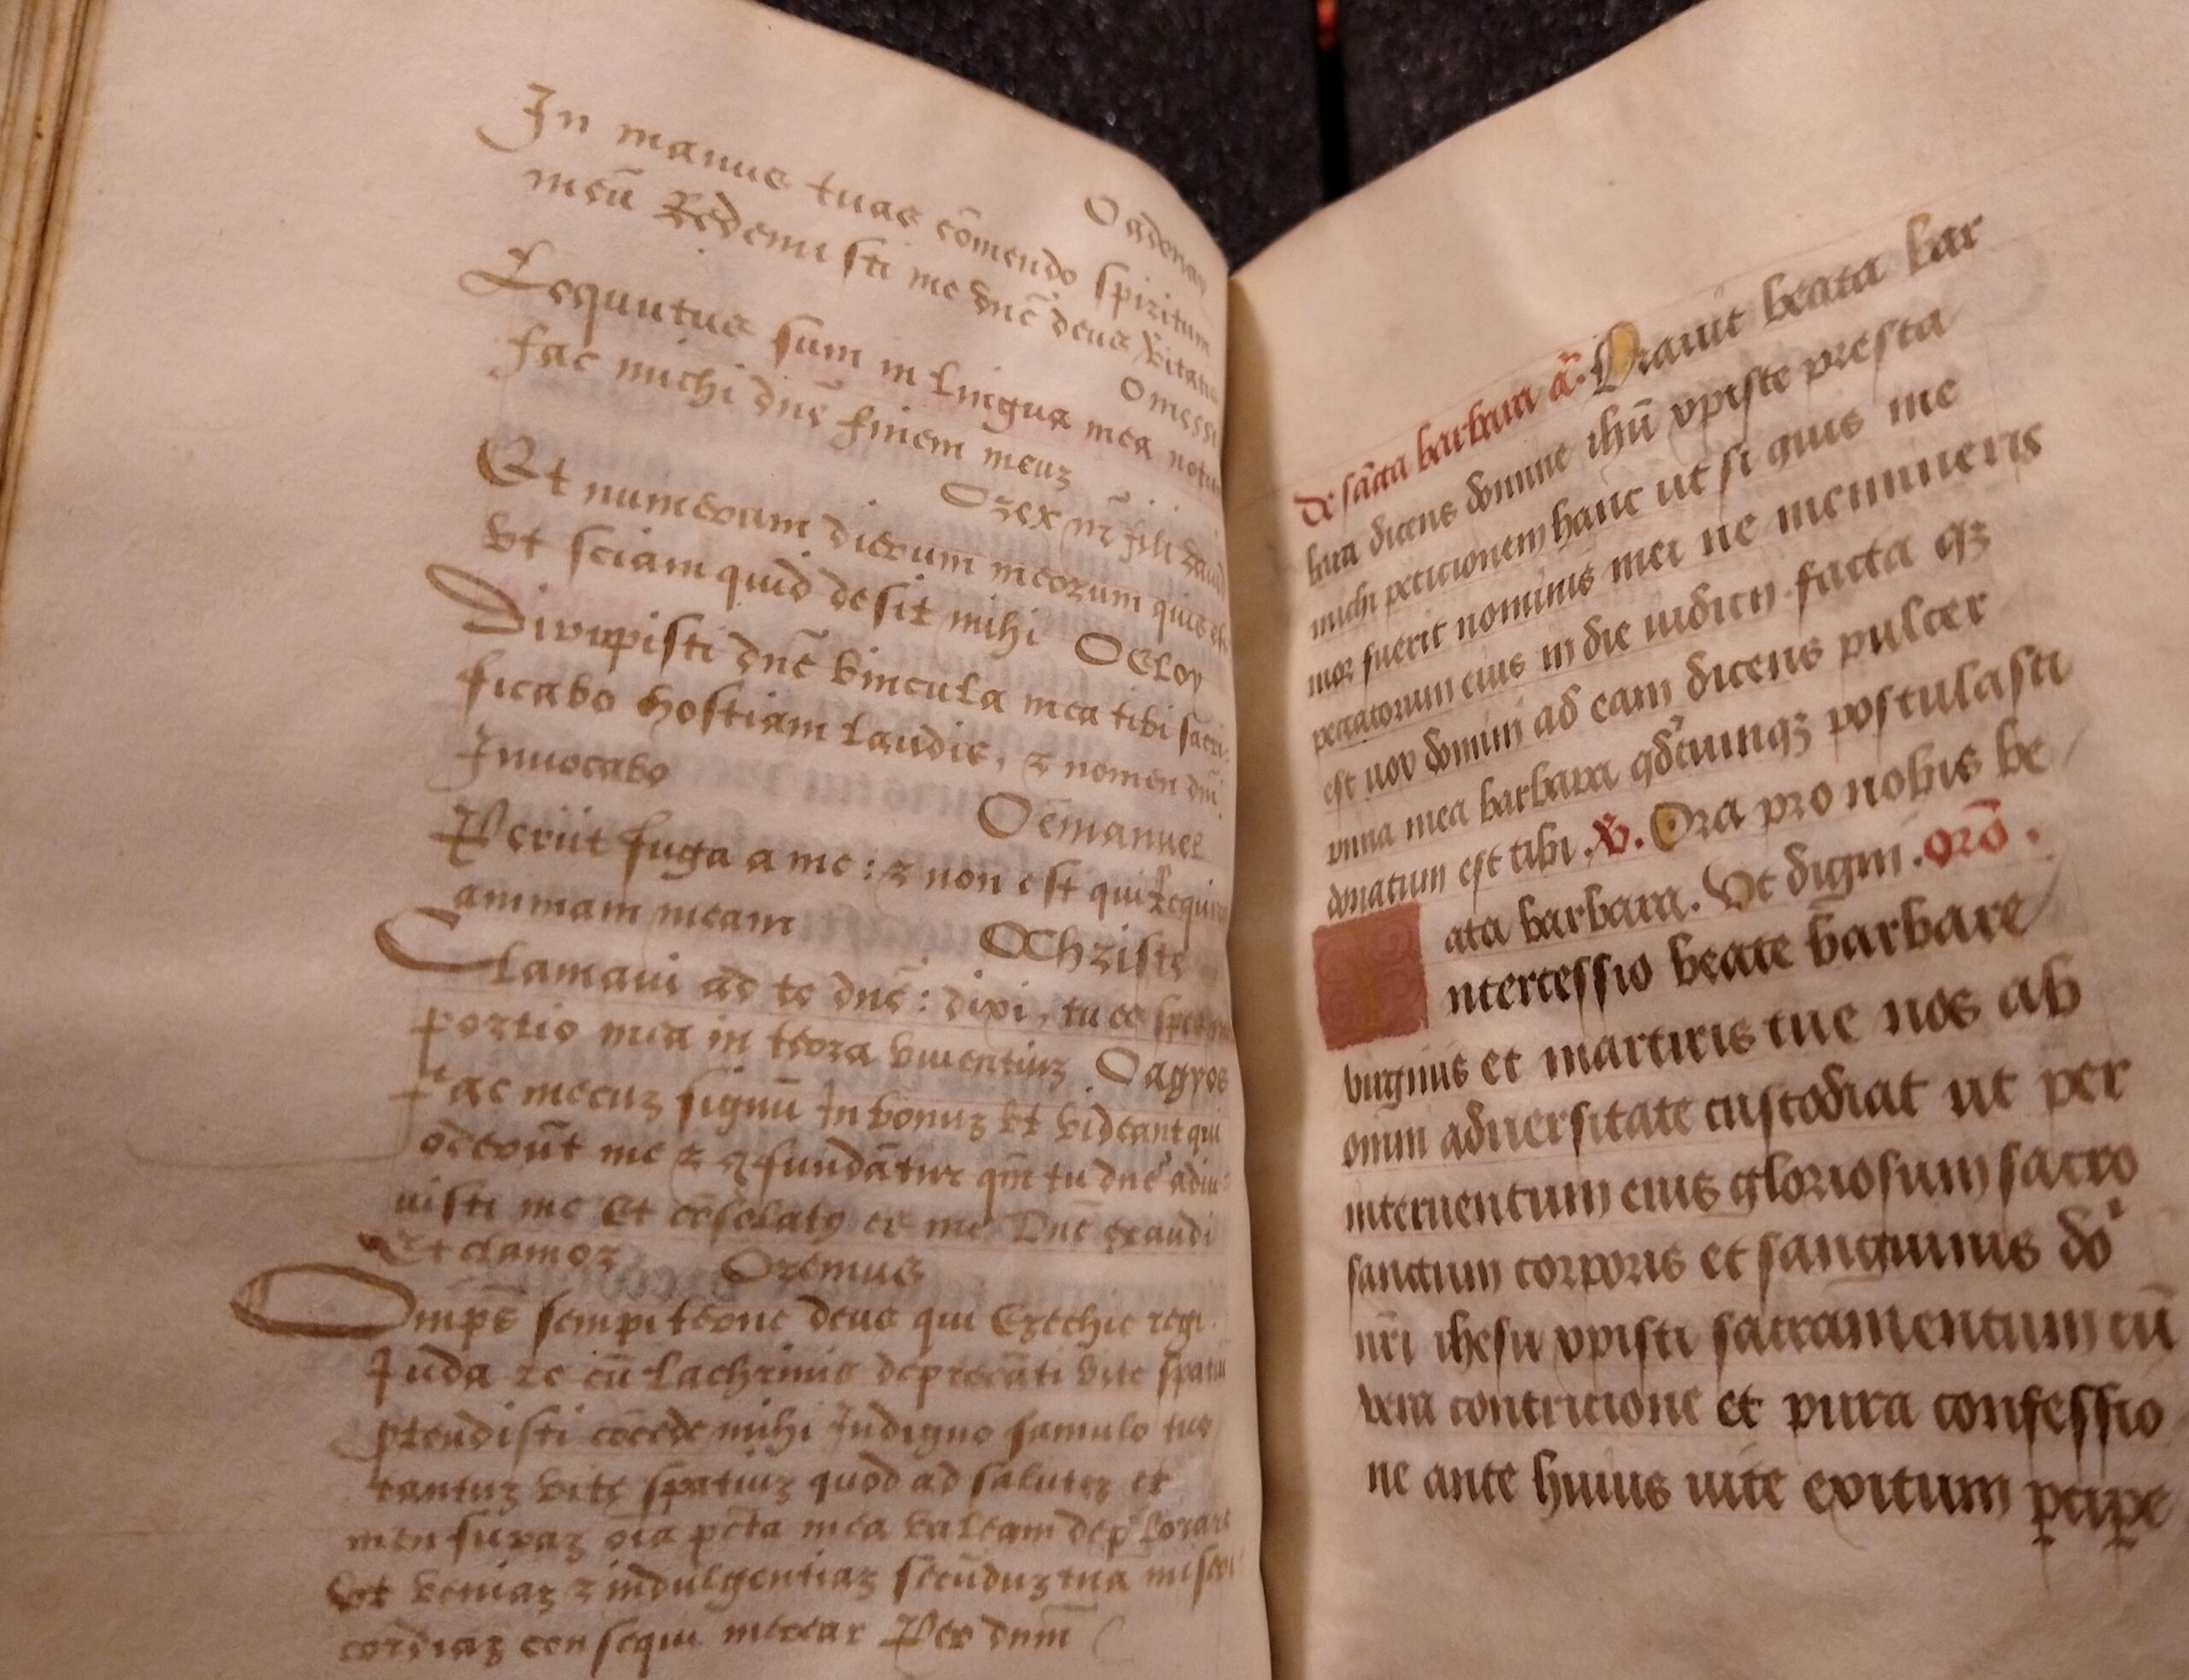 O adonay
In manus tuas cōmendo spiritum
meū Redemisti me dnē deus v̄itatis
O messi
Loquutus sum in lingua mea notum
fac michi dnē finem meuʒ
O rex nr̄ fili
Et numerum dierum meorum quis est
vt sciam quid desit mihi O Eloy
Dirupisti dnē vincula mea tibi sacri-
ficabo hostiam laudis, ⁊ nomen dnī
Invocabo
O emanuel
Periit fuga a me : ⁊ non est qui requirat
animam meam O Christe
Clamavi ad te dnē : dixi, tu es spes mea
portio mea in terra viventiuʒ O agyos
Fac mecuʒ signū In bonuʒ vt videant qui
oderūt me ⁊ ꝯfundātur qm̄ tu dnē adiu-
uisti me Et cōsolatꝰ es me Dnē exaudi
Et clamor Oremus
Omps̄ sempiterne deus qui Ezechie regi
Juda te cū lachrimis deprecāti vite spatiū
ꝓtendisti cōcede mihi Indigno famulo tuo
tantuʒ vite spatiuʒ quod ad saluteʒ et
mensuraʒ oīa pc̄ta mea valeam deplorare
Vt veniaʒ ⁊ indulgentiaʒ secūduʒ tuā miseri
cordiaʒ consequi merear Per dnm̄
de sācta barbara ā. Orauit beata bar
bara dicens domine ihū xpiste presta
michi peticionem hanc ut si quis me
mor fuerit nominis mei ne memineris
peccatorum eius in die iudicii facta qʒ
est uox domini ad eam dicens pulcer
rima mea barbara qd̄cumqʒ postulasti
donatum est tibi. ꝟ. Ora pro nobis be
ata barbara. Vt digni. orō.
Intercessio beate barbare
uirginis et martiris tue nos ab
omni aduersitate custodiat ut per
interuentum eius gloriosum sacro
sanctum corporis et sanguinis do
nr̄i ihesu xpisti sacramentum cū
vera contricione et pura confessio
ne ante huius uite exitum ꝑcipe